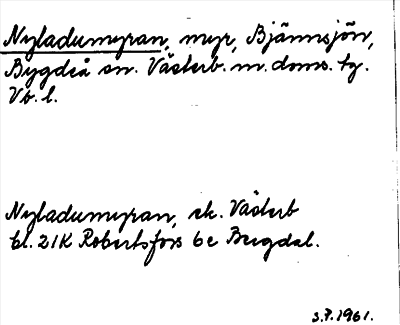 Nyladumyran, myr, Bjännsjön,
Bygdeå sn. Västerb. m. doms. tg.
Vb. l.
Nyladumyran, ek. Västerb
bl. 21K Robertsfors 6c Bregdal.
3.7.1961.